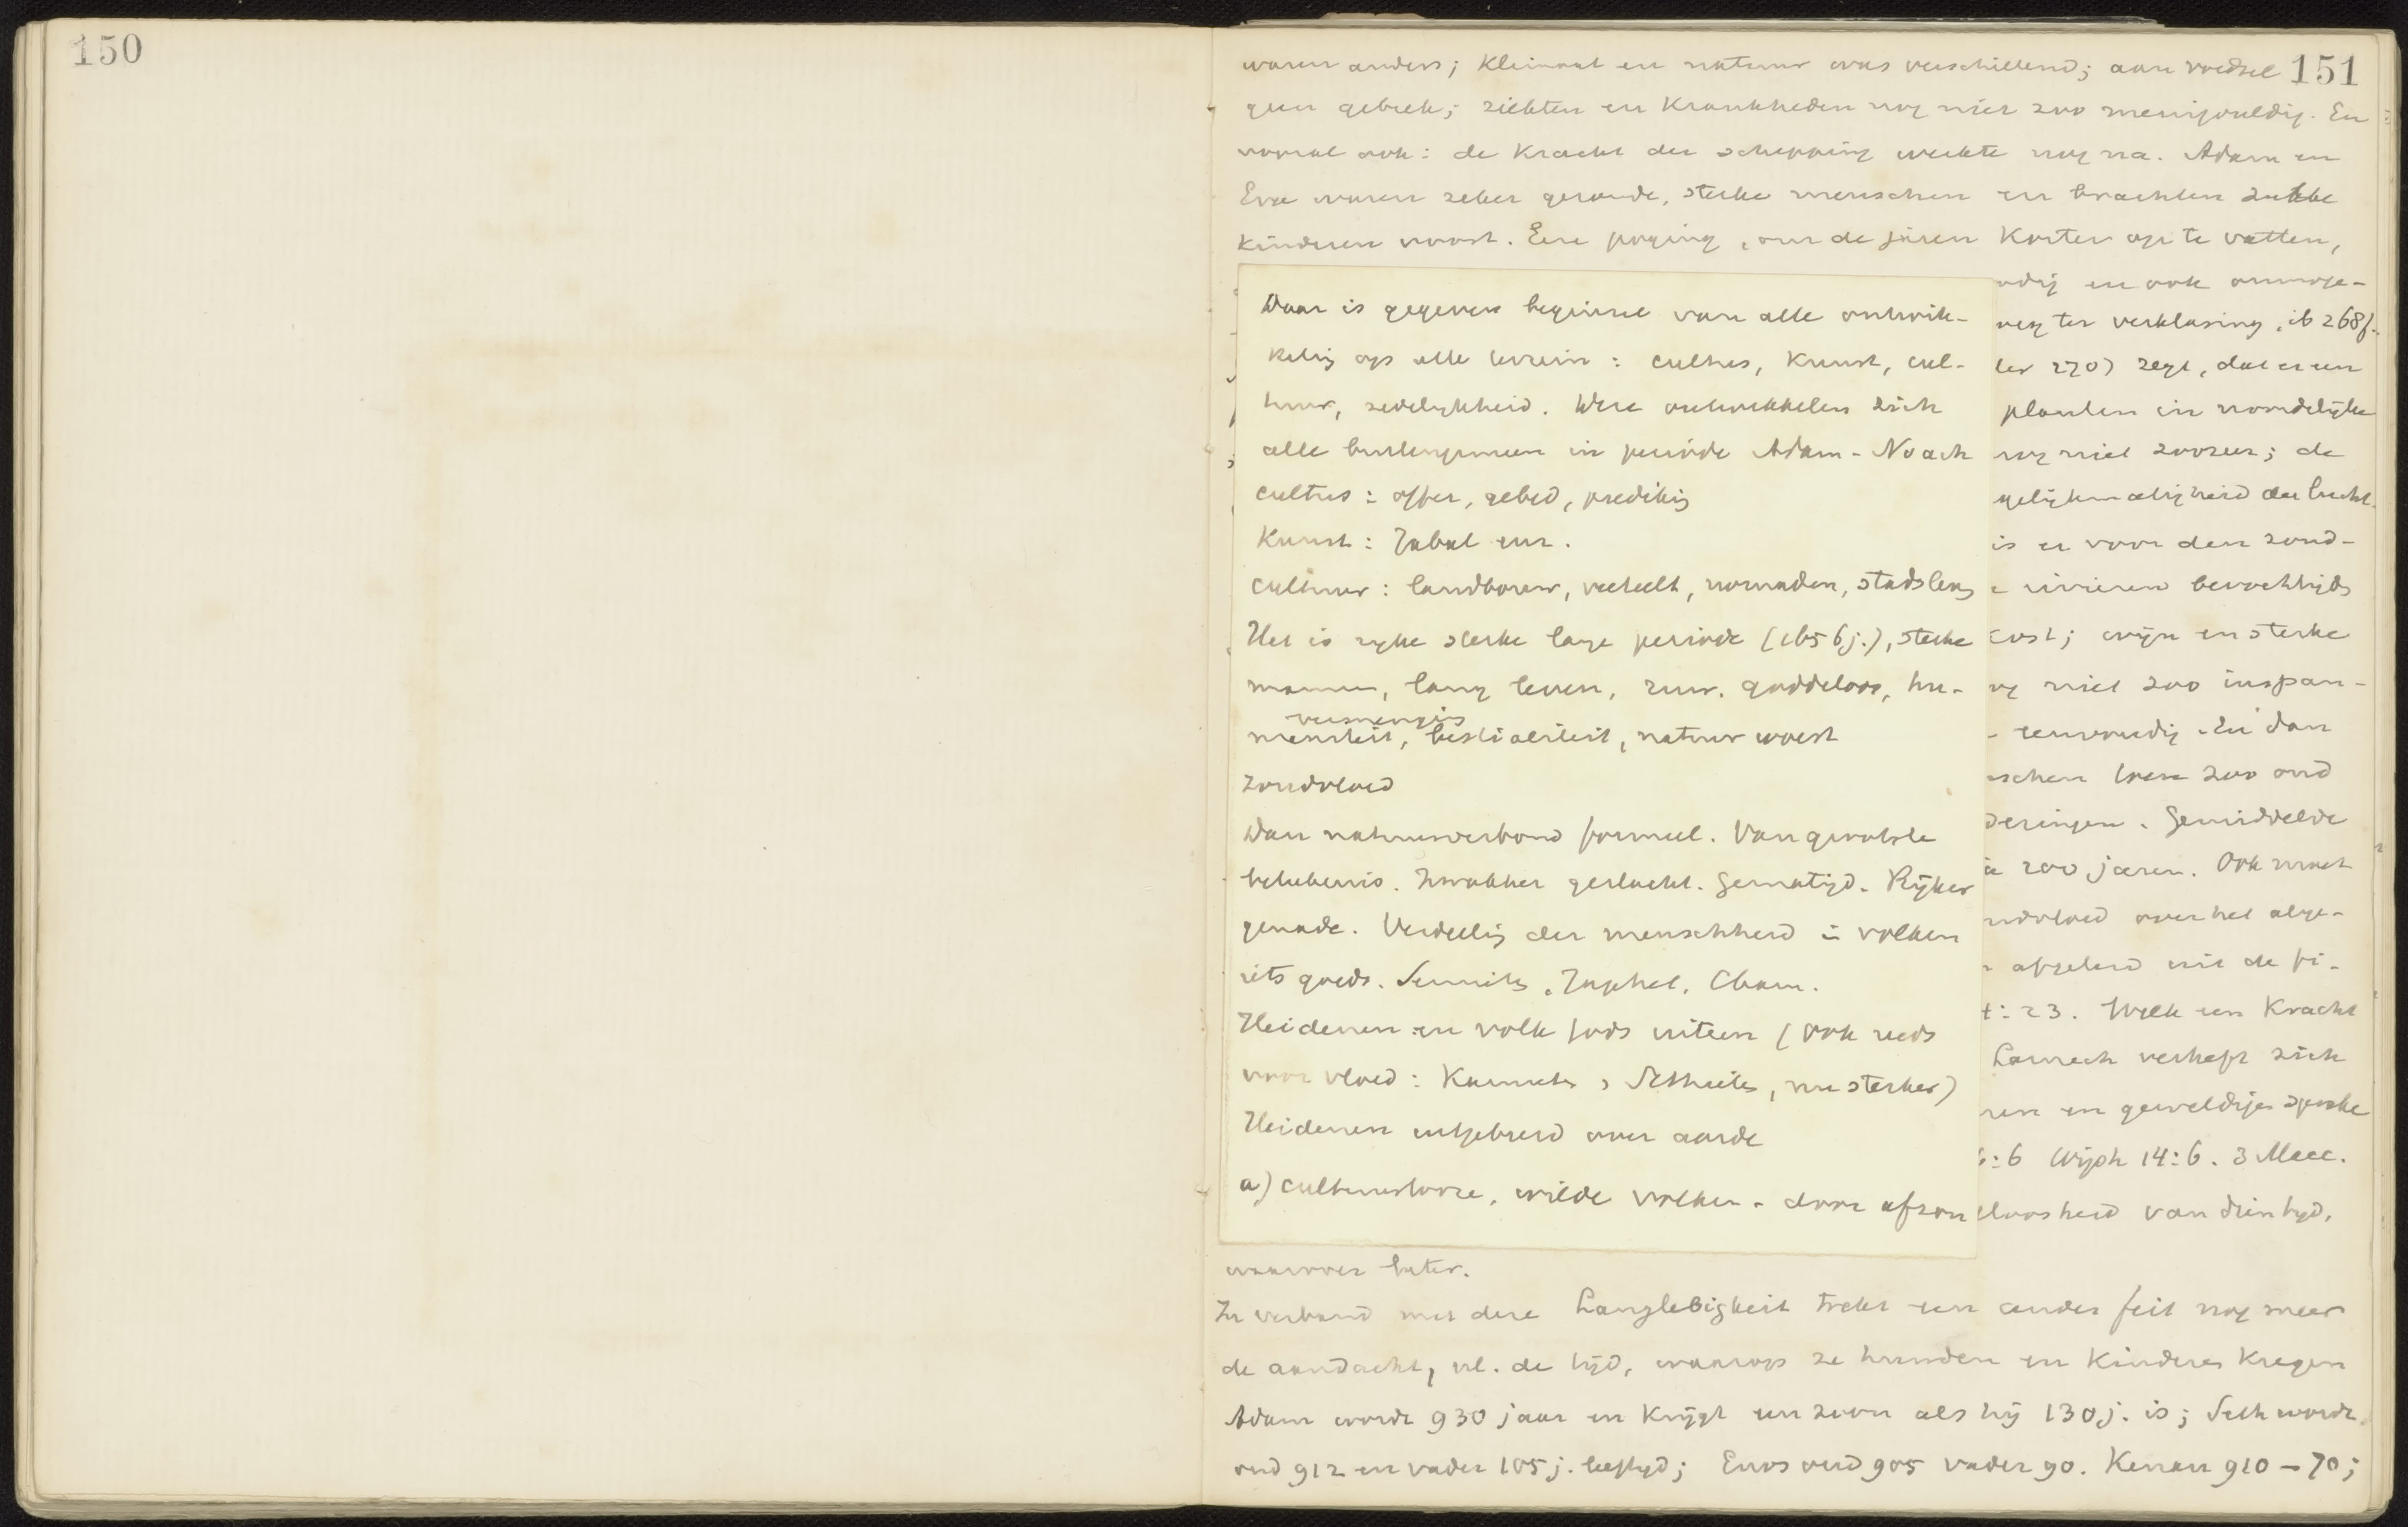 150
151
waren anders; klimaat en natuur was verschillend; aan voedsel
geen gebrek; ziekten en krankheden nog niet zoo menigvuldig. En
vooral ook: de kracht der schepping werkte nog na. Adam en
Eva waren zeker gezonde, sterke menschen en brachten zulke
kinderen voort. Eene poging, om de jaren korter op te vatten,
Daar is gegeven beginsel van alle ontwik-
keling op alle terrein: cultus, kunst, cul-
tuur, zedelijkheid. Deze ontwikkelen zich
alle in periode Adam - Noach
cultus: offer, gebed, prediking
Kunst: Jabal enz.
cultuur: landbouw, veeteelt, nomaden, stadsleven
Het is rijke sterke lange periode (1656 j.), sterke
mannen, lang leven, enz. goddeloos, hu-
vermenging
maniteit, bestialiteit, natuur woest
zondvloed
Dan natuurverbond formeel. Van grootste
beteekenis. Zwakker geslacht. Gematigd. Rijker
genade. Verdeeling der menschheid in volken
iets goeds. Semiten, Japhet, Cham.
Heidenen en volk Gods uiteen (ook reeds
voor vloed: Kainieten, Sethieten, nu sterker)
Heidenen uitgebreid over aarde
a) cultuurlooze, wilde volken - door afzon
en ook onmoge-
weg ter verklaring, ib 268f.
270) zegt, dat er een
planten in noordelijke
nog niet zoozeer; de
gelijkmatigheid der lucht.
is er voor den zond-
rivieren bevochtigd
kost; wijn en sterke
niet zoo inspan-
eenvoudig. En dan
zoo oud
Gemiddelde
200 jaren. Ook moet
over het alge-
afgeleid uit de
4:23. Welk een kracht
Lamech verheft zich
en geweldige sprake
6:6 Wijsh 14:6. 3 Macc.
loosheid van dien tijd,
waarover later.
In verband met deze Langlebigkeit trekt een ander feit nog meer
de aandacht, nl. de tijd, waarop ze huwden en kinderen kregen
Adam wordt 930 jaar en krijgt een zoon als hij 130 j. is; Seth wordt
oud 912 en vader 105 j. leeftijd; Enos oud 905 vader 90. Kenan 910 - 70;